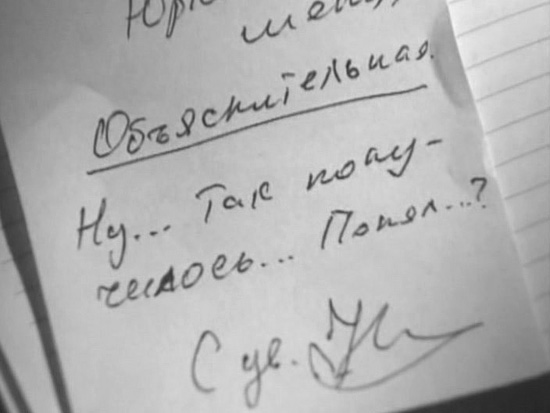 Объяснительная.
Ну... Так полу-
чилось... Понял...?
С ув.